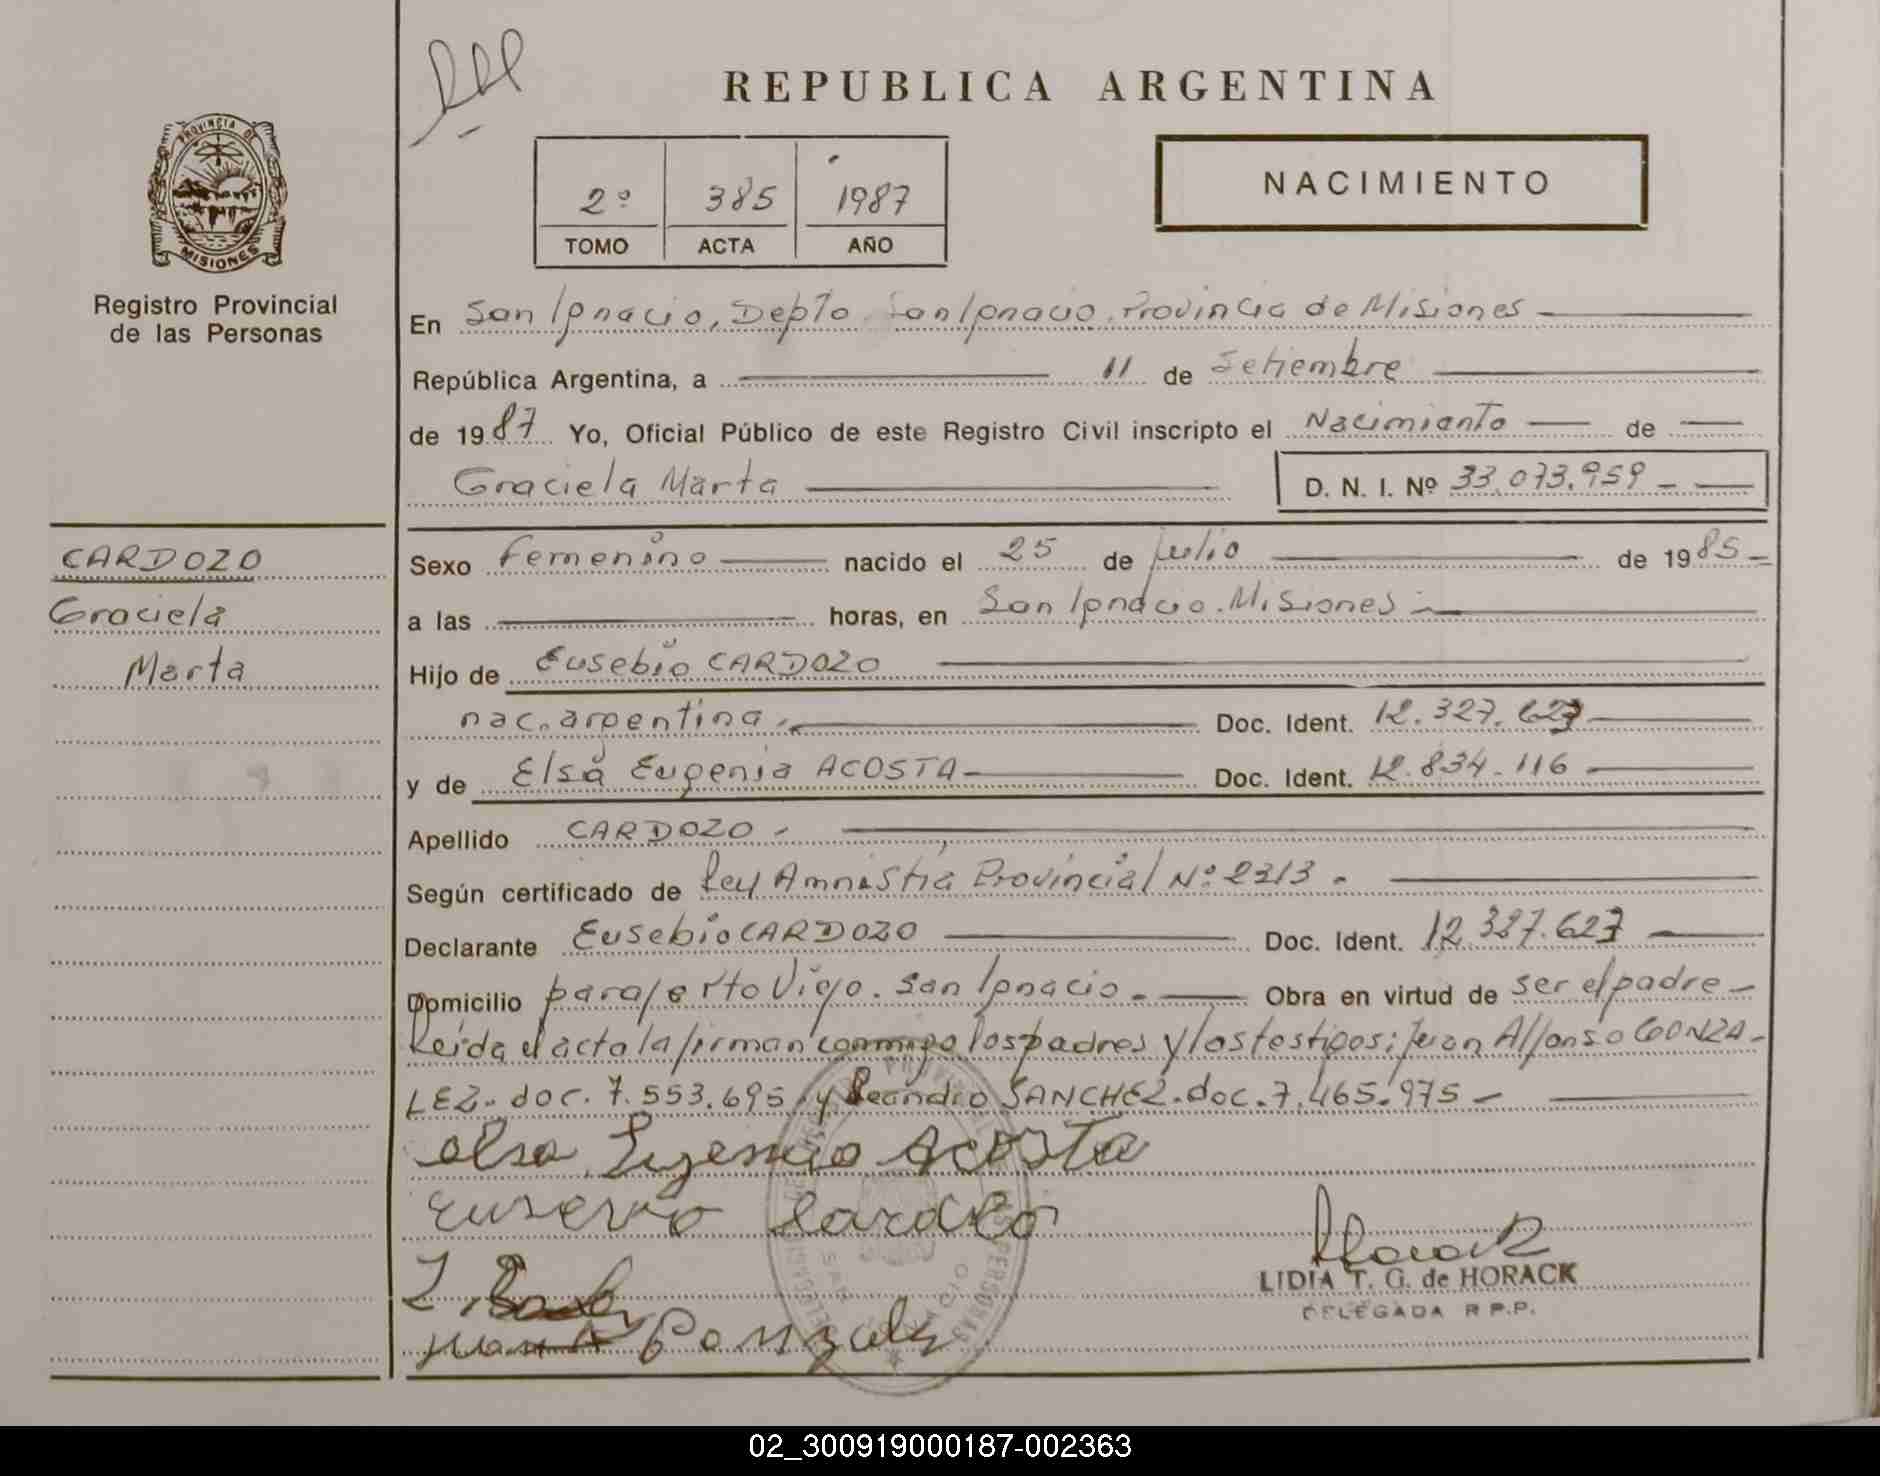 REPUBLICA ARGENTINA
PROVINCIA DE
MISIONES
Registro Provincial
de las Personas
2º 385 1987
TOMO ACTA AÑO
NACIMIENTO
En San Ignacio, Depto San Ignacio. Provincia de Misiones
República Argentina, a 11 de Setiembre
de 1987 Yo, Oficial Público de este Registro Civil inscripto el Nacimianto de
Graciela Marta D. N. I. Nº 33.073.959
CARDOZO
Graciela
Marta
Sexo Femenino nacido el 25 de julio de 1985
a las horas, en San Ignacio. Misiones
Hijo de Eusebio CARDOZO
nac. argentina. Doc. Ident. 12.327.627
y de Elsa Eugenia ACOSTA Doc. Ident. 12.834.116
Apellido CARDOZO
Según certificado de Ley Amnistia Provincial Nº 2313.
Declarante Eusebio CARDOZO Doc. Ident. 12.327.627
Domicilio paraje Pto Viejo. San Ignacio Obra en virtud de ser el padre
Leida el acta la firman conmigo los padres y los testigos: Juan Alfonso GONZA-
LEZ. doc. 7.553.695 y Leandro SANCHEZ. doc. 7.465.975
elsa Eugenia Acosta
Cardozo
LIDIA T. G. de HORACK
DELEGADA R.P.P.
Juan A Gonzalez
02_300919000187-002363